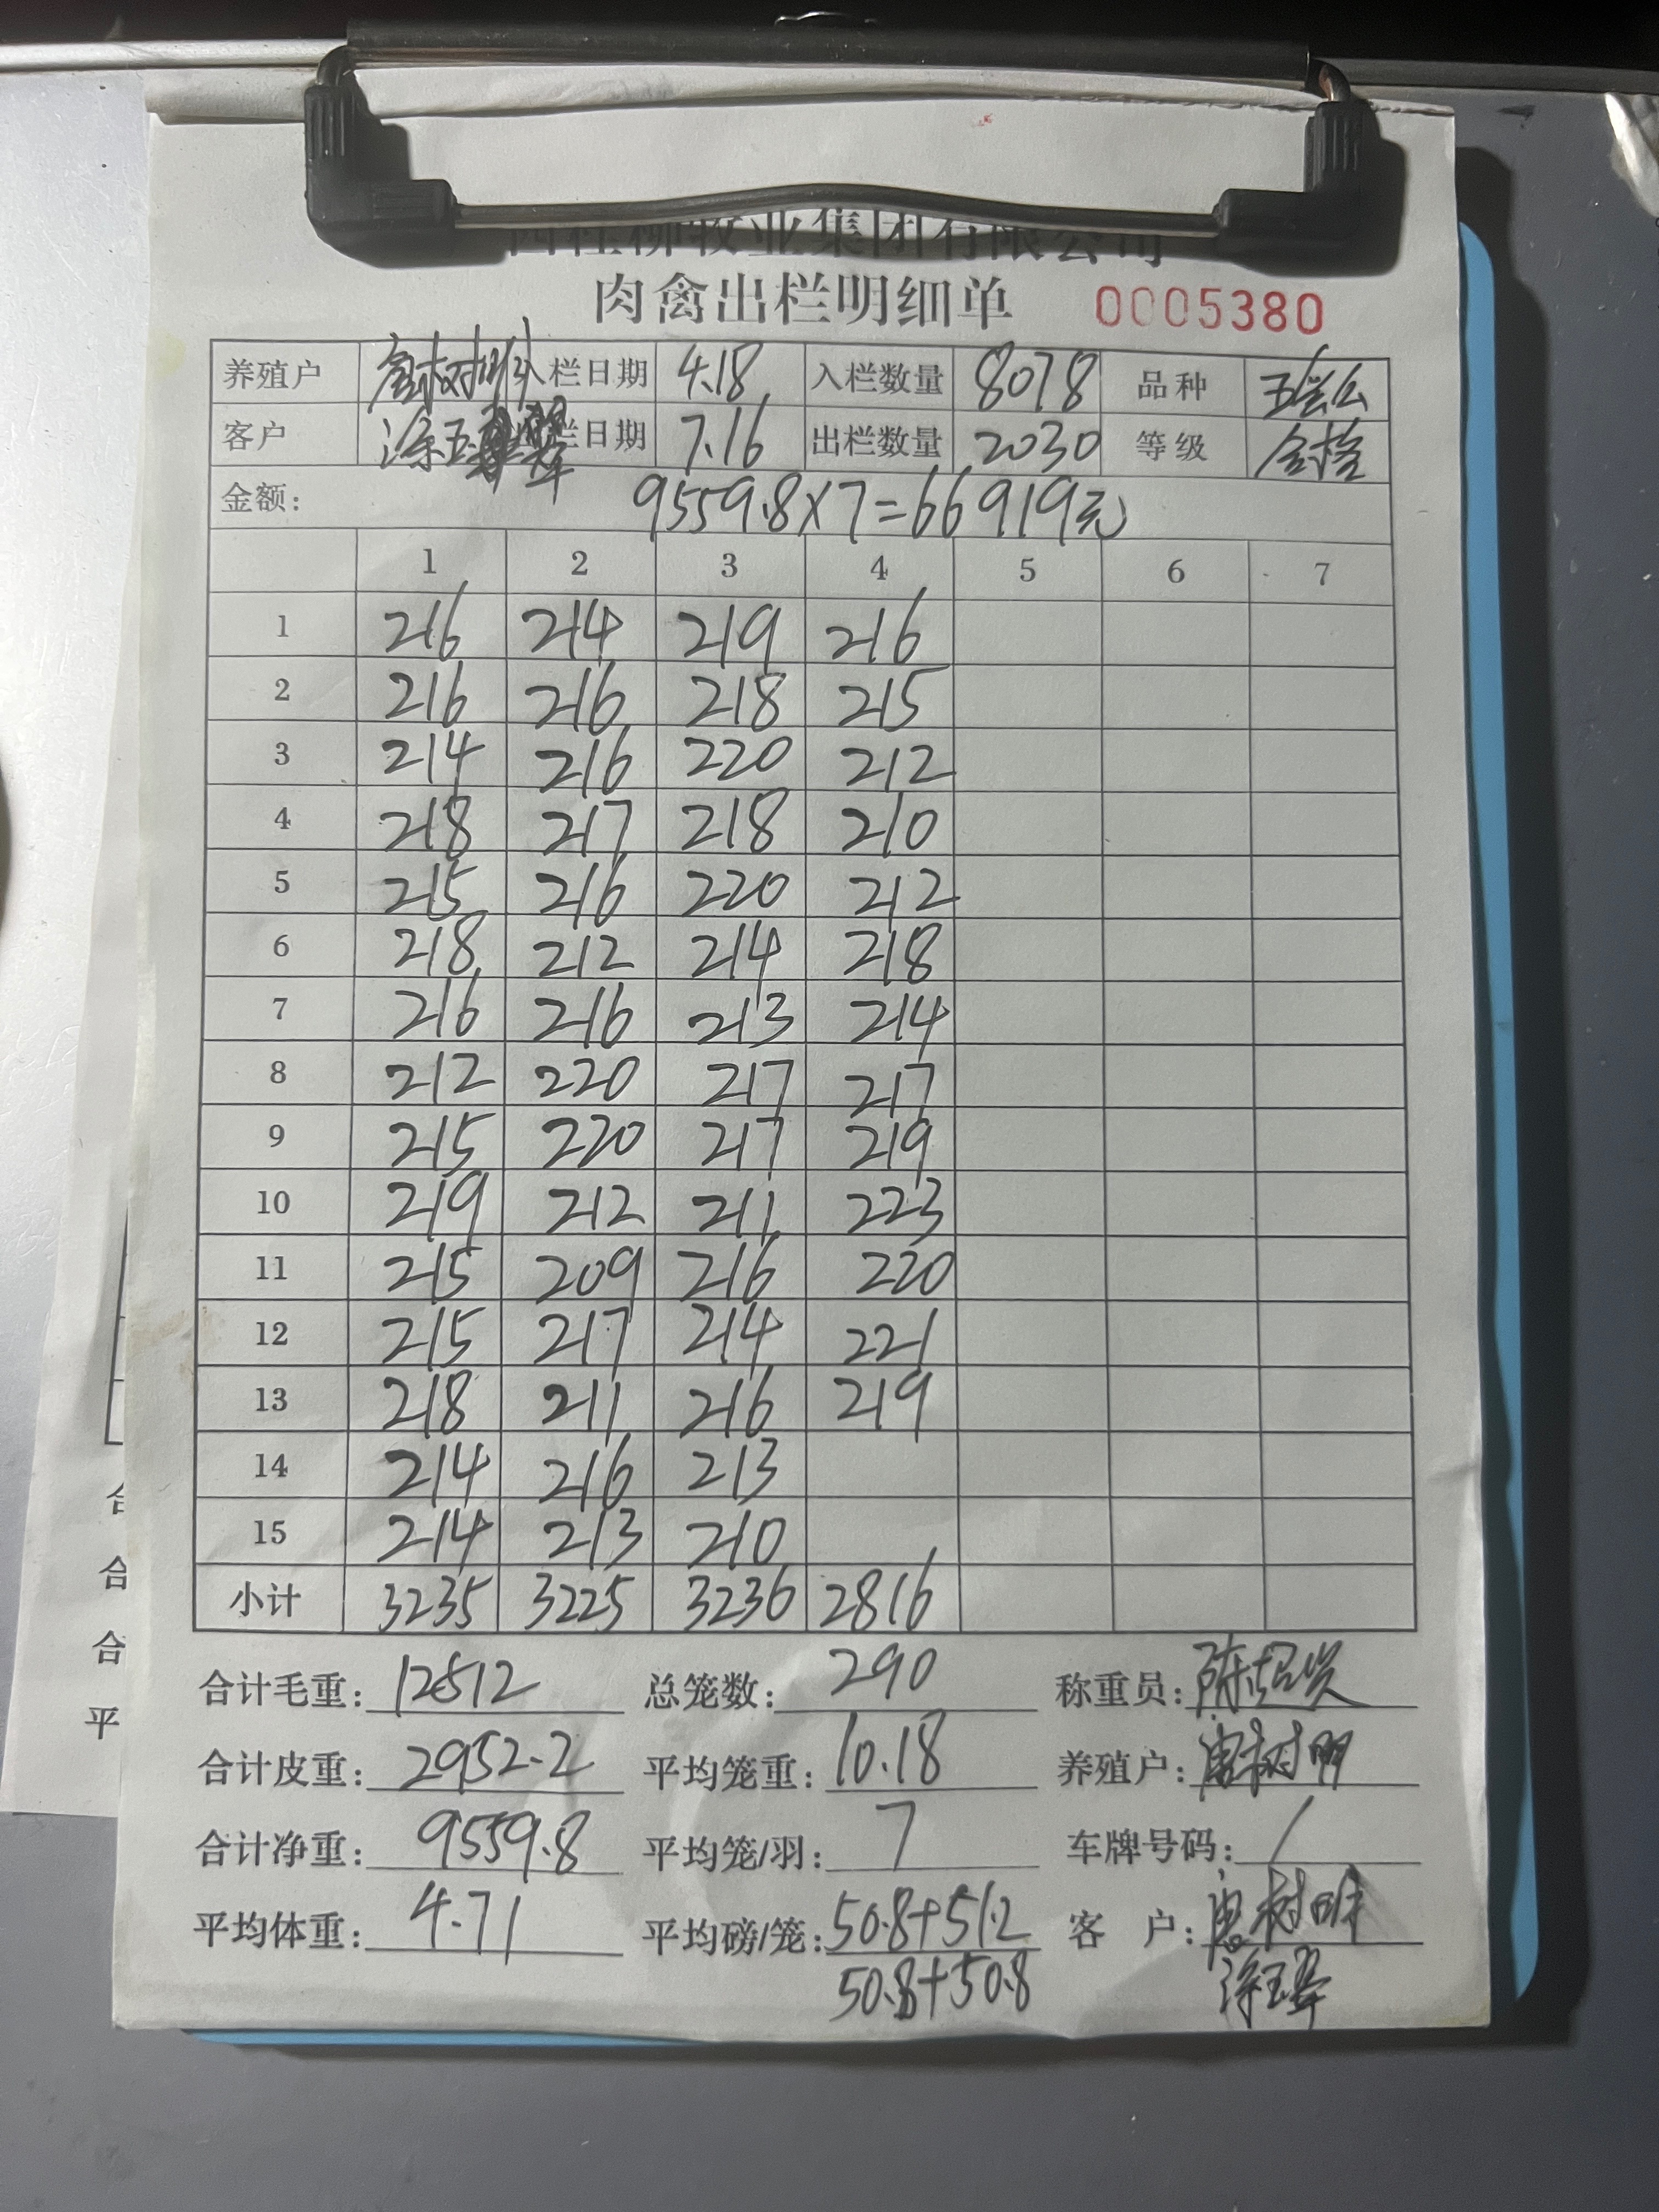 西桂柳牧业集团有限公司
肉禽出栏明细单 0005380
养殖户 入栏日期 4.18 入栏数量 8078 品种
客户 涂玉翠 出栏日期 7.16 出栏数量 2030 等级
金额: 9559.8×7=66919元
1 2 3 4 5 6 7
1 216 214 219 216
2 216 216 218 215
3 214 216 220 212
4 218 217 218 210
5 215 216 220 212
6 218 212 214 218
7 216 216 213 214
8 212 220 217 217
9 215 220 217 219
10 219 212 211 223
11 215 209 216 220
12 215 217 214 221
13 218 211 216 219
14 214 216 213
15 214 213 210
小计 3235 3225 3236 2816
合计毛重: 12512 总笼数: 290 称重员:
合计皮重: 2952.2 平均笼重: 10.18 养殖户: 唐树明
合计净重: 9559.8 平均笼/羽: 7 车牌号码: /
平均体重: 4.71 平均磅/笼: 50.8+51.2 客 户: 唐树明
50.8+50.8 涂玉翠
合
合
合
平